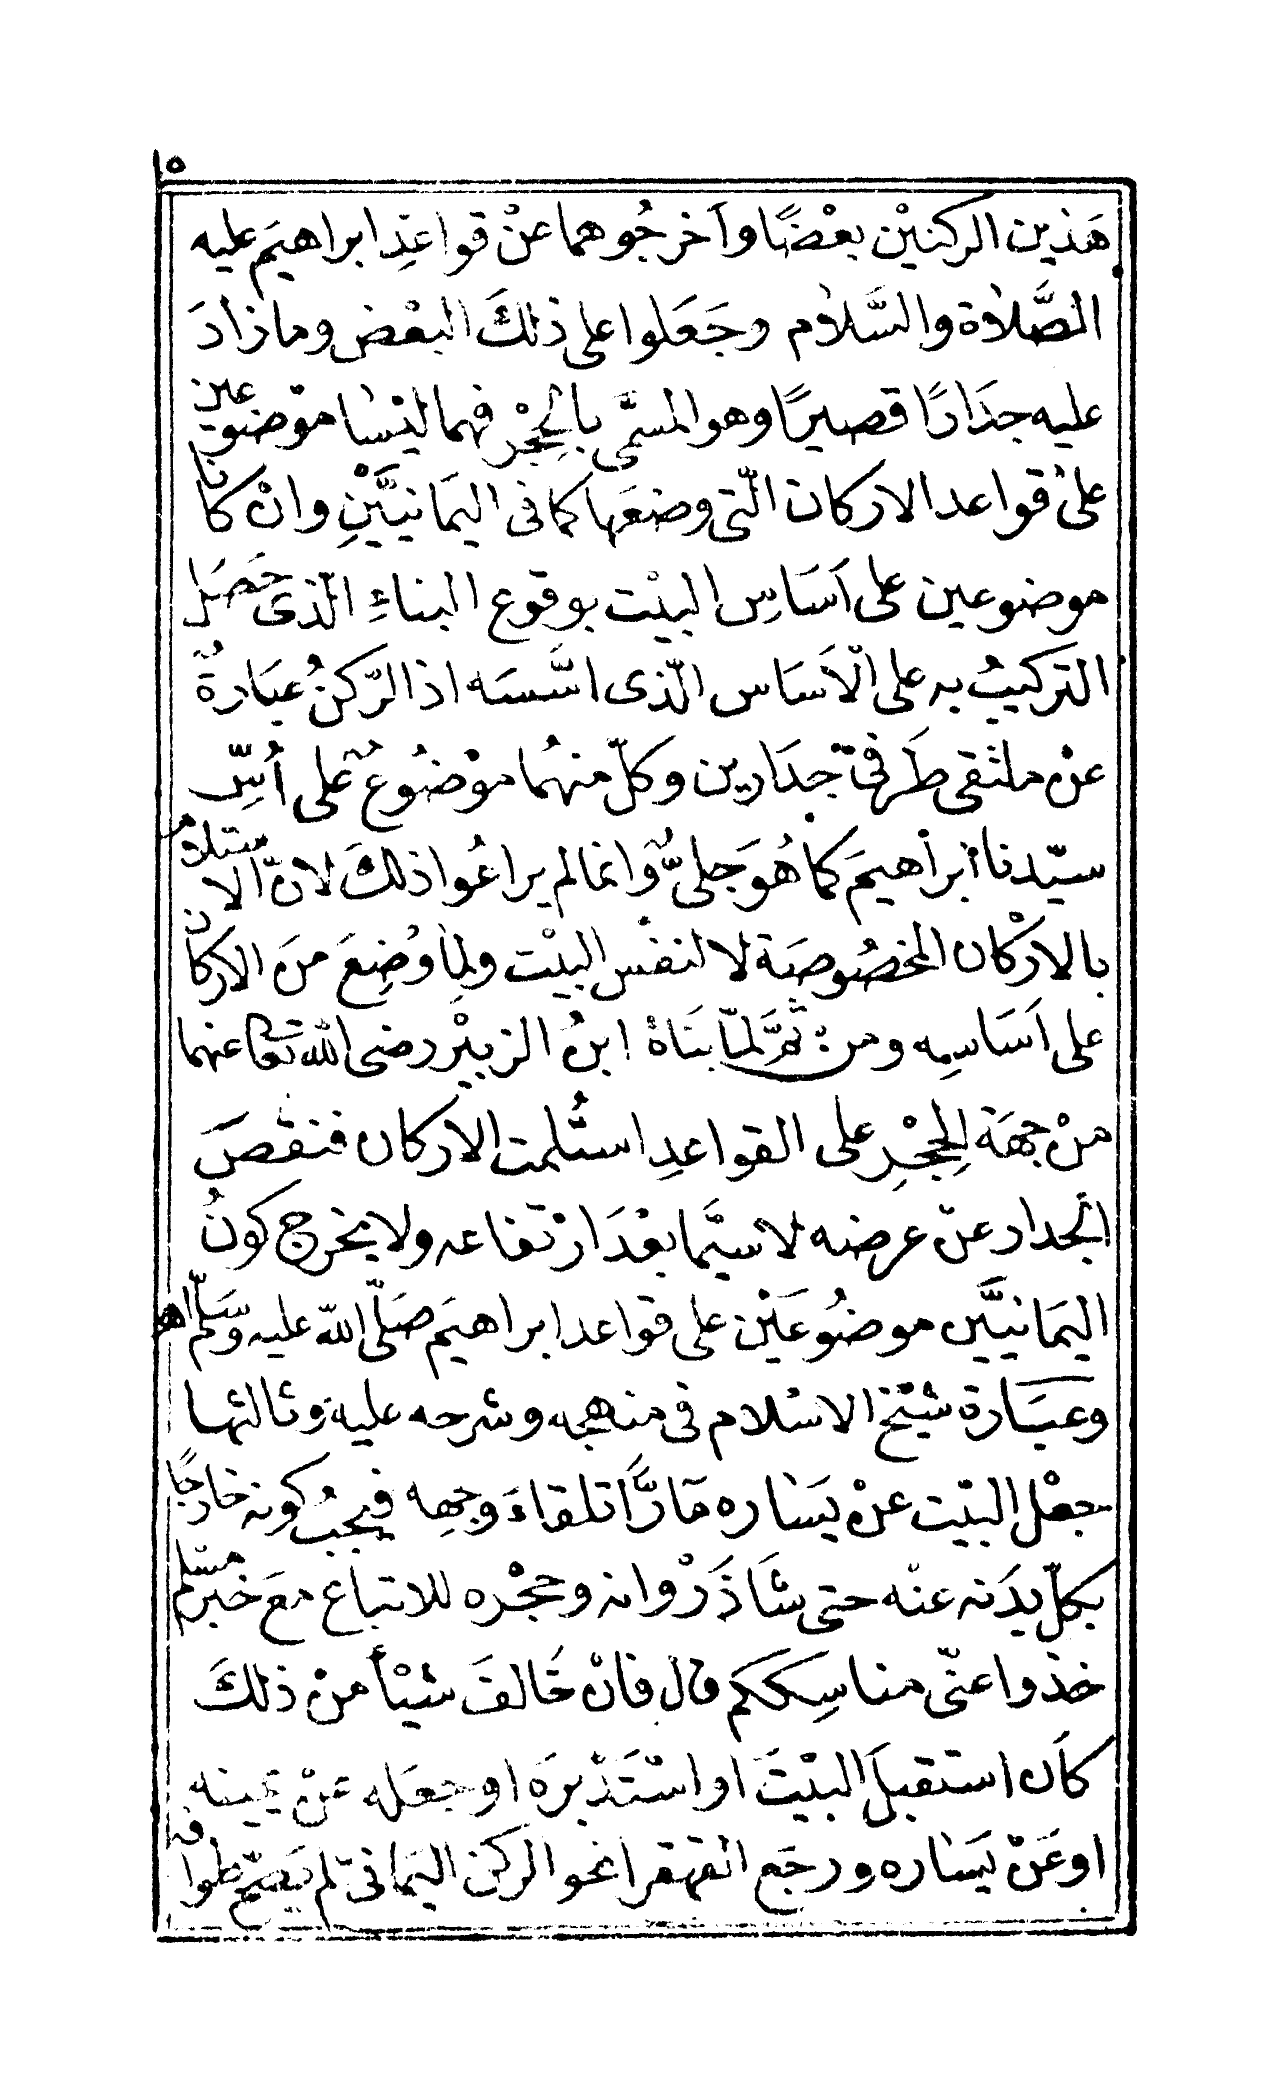 ١٥
هَذين الركنيْن بعْضًا وأخرجُوهما عنْ قواعِدِ ابراهيمَ عليه
الصَّلاة والسَّلام وجَعَلوا على ذلكَ البعْض وما زادَ
عليه جدَارًا قصيرًا وهو المسمَّى بالحِجْر فهما ليْسَا موْضوعين
على قواعد الاركان الّتى وضعَها كما فى اليمَانيَّيْنِ وانْ كانا
موضوعين على أسَاسِ البيْت بوقوع البناءِ الّذى حَصَلَ
التركيبُ به على الْأسَاس الّذى اسَّسَه اذ الرّكنُ عبَارةٌ
عنْ ملتقى طَرَفىْ جدَارين وكلّ منهُما موْضُوعٌ على أُسِّ
سيّدنا ابْراهيمَ كما هُوَ جلىٌّ وانما لم يراعُوا ذلكَ لانّ الاستلام
بالارْكان المخصُوصَة لا لنفْس البيْت ولِمَا وُضِعَ منَ الاركان
على أسَاسِه ومن ثمَّ لمّا بنَاهُ ابنُ الزبيْر رضى الله تعالى عنهما
منْ جهَة الحِجْرِ على القواعدِ استُلمت الاركان فنقْصَ
الجدار عنْ عرضه لا سيَّما بعْدَ ارْتفاعه ولا يخرج كونُ
اليمَانيَّين موضُوعَيْن على قواعد ابراهيمَ صَلّى الله عليه وسَلّم اهـ
وعبَارة شيْخ الاسْلام فى منهجه وشرحه عليه وثالثها
جعْل البيْت عنْ يسَاره مَارًّا تلقاءَ وجهِه فيجبُ كونه خارجًا
بكلّ بدَنه عنْه حتى شَاذَرْوانه وحِجْره للاتباع معَ خبر مسْلم
خذوا عنّى مناسِككم قال فانْ خَالفَ شيْأً منْ ذلكَ
كأن استقبلَ البيْتَ او اسْتَدْبرَه او جعَله عنْ يمينه
او عَنْ يسَاره ورجَع القهقرا نحو الركن اليمانىّ لم يَصحّ طوافه